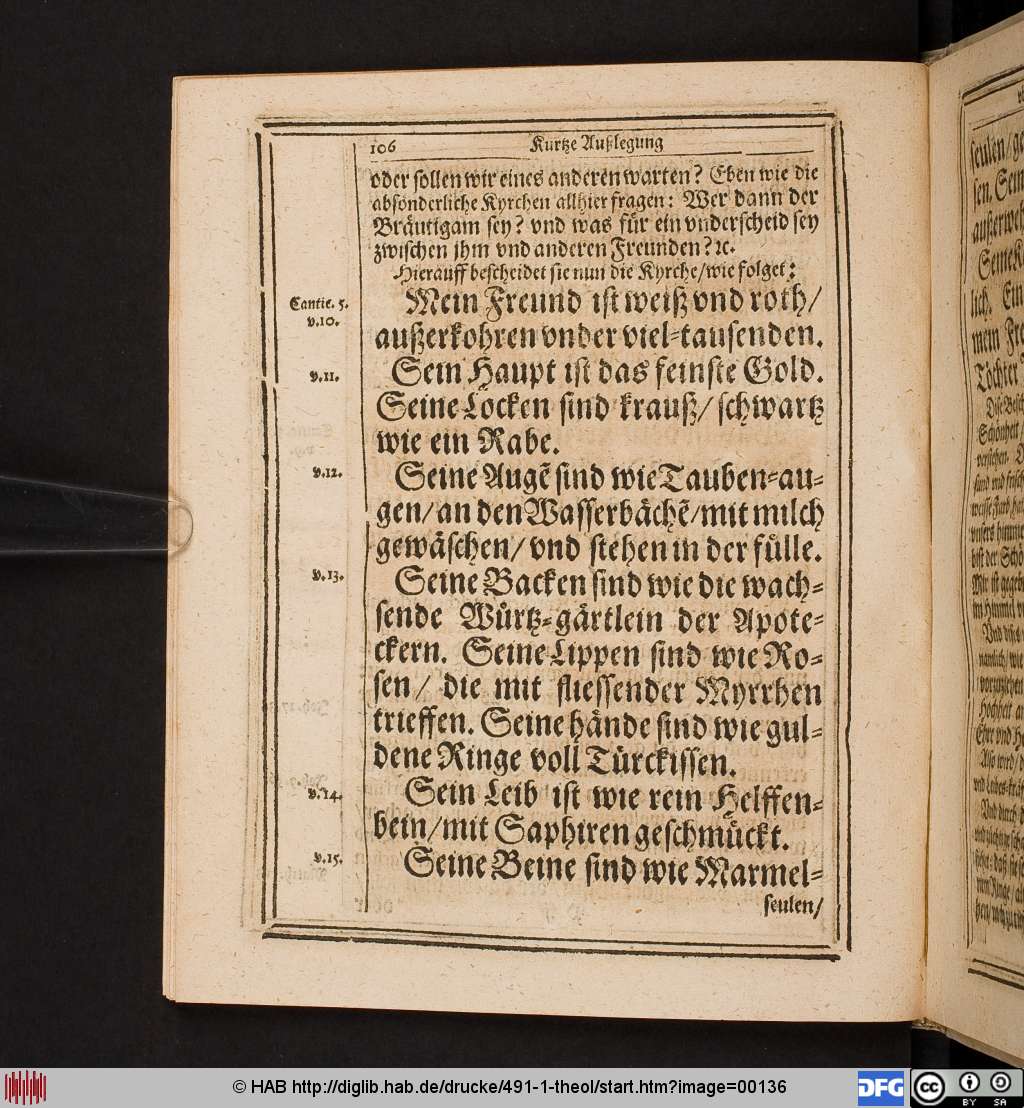 106 Kurtze Außlegung
oder sollen wir eines anderen warten? Eben wie die
absonderliche Kyrchen allhier fragen: Wer dann der
Bräutigam sey? vnd was für ein vnderscheid sey
zwischen jhm vnd anderen Freunden? ꝛc.
Hierauff bescheidet sie nun die Kyrche/wie folget:
Cantic. 5. v.10. Mein Freund ist weiß vnd roth/
außerkohren vnder viel-tausenden.
v.11. Sein Haupt ist das feinste Gold.
Seine Locken sind krauß/ schwartz
wie ein Rabe.
v.12. Seine Augẽ sind wie Tauben-au-
gen/ an den Wasserbächẽ/mit milch
gewäschen/ vnd stehen in der fülle.
v.13. Seine Backen sind wie die wach-
sende Würtz-gärtlein der Apote-
ckern. Seine Lippen sind wie Ro-
sen/ die mit fliessender Myrrhen
trieffen. Seine hände sind wie gul-
dene Ringe voll Türckissen.
v.14. Sein Leib ist wie rein Helffen-
bein/mit Saphiren geschmückt.
v.15. Seine Beine sind wie Marmel-
seulen/
seulen/
sen. Sein
Seine
lich. Ein
mein
Töchter
Schönheit
© HAB http://diglib.hab.de/drucke/491-1-theol/start.htm?image=00136
DFG
cc BY SA